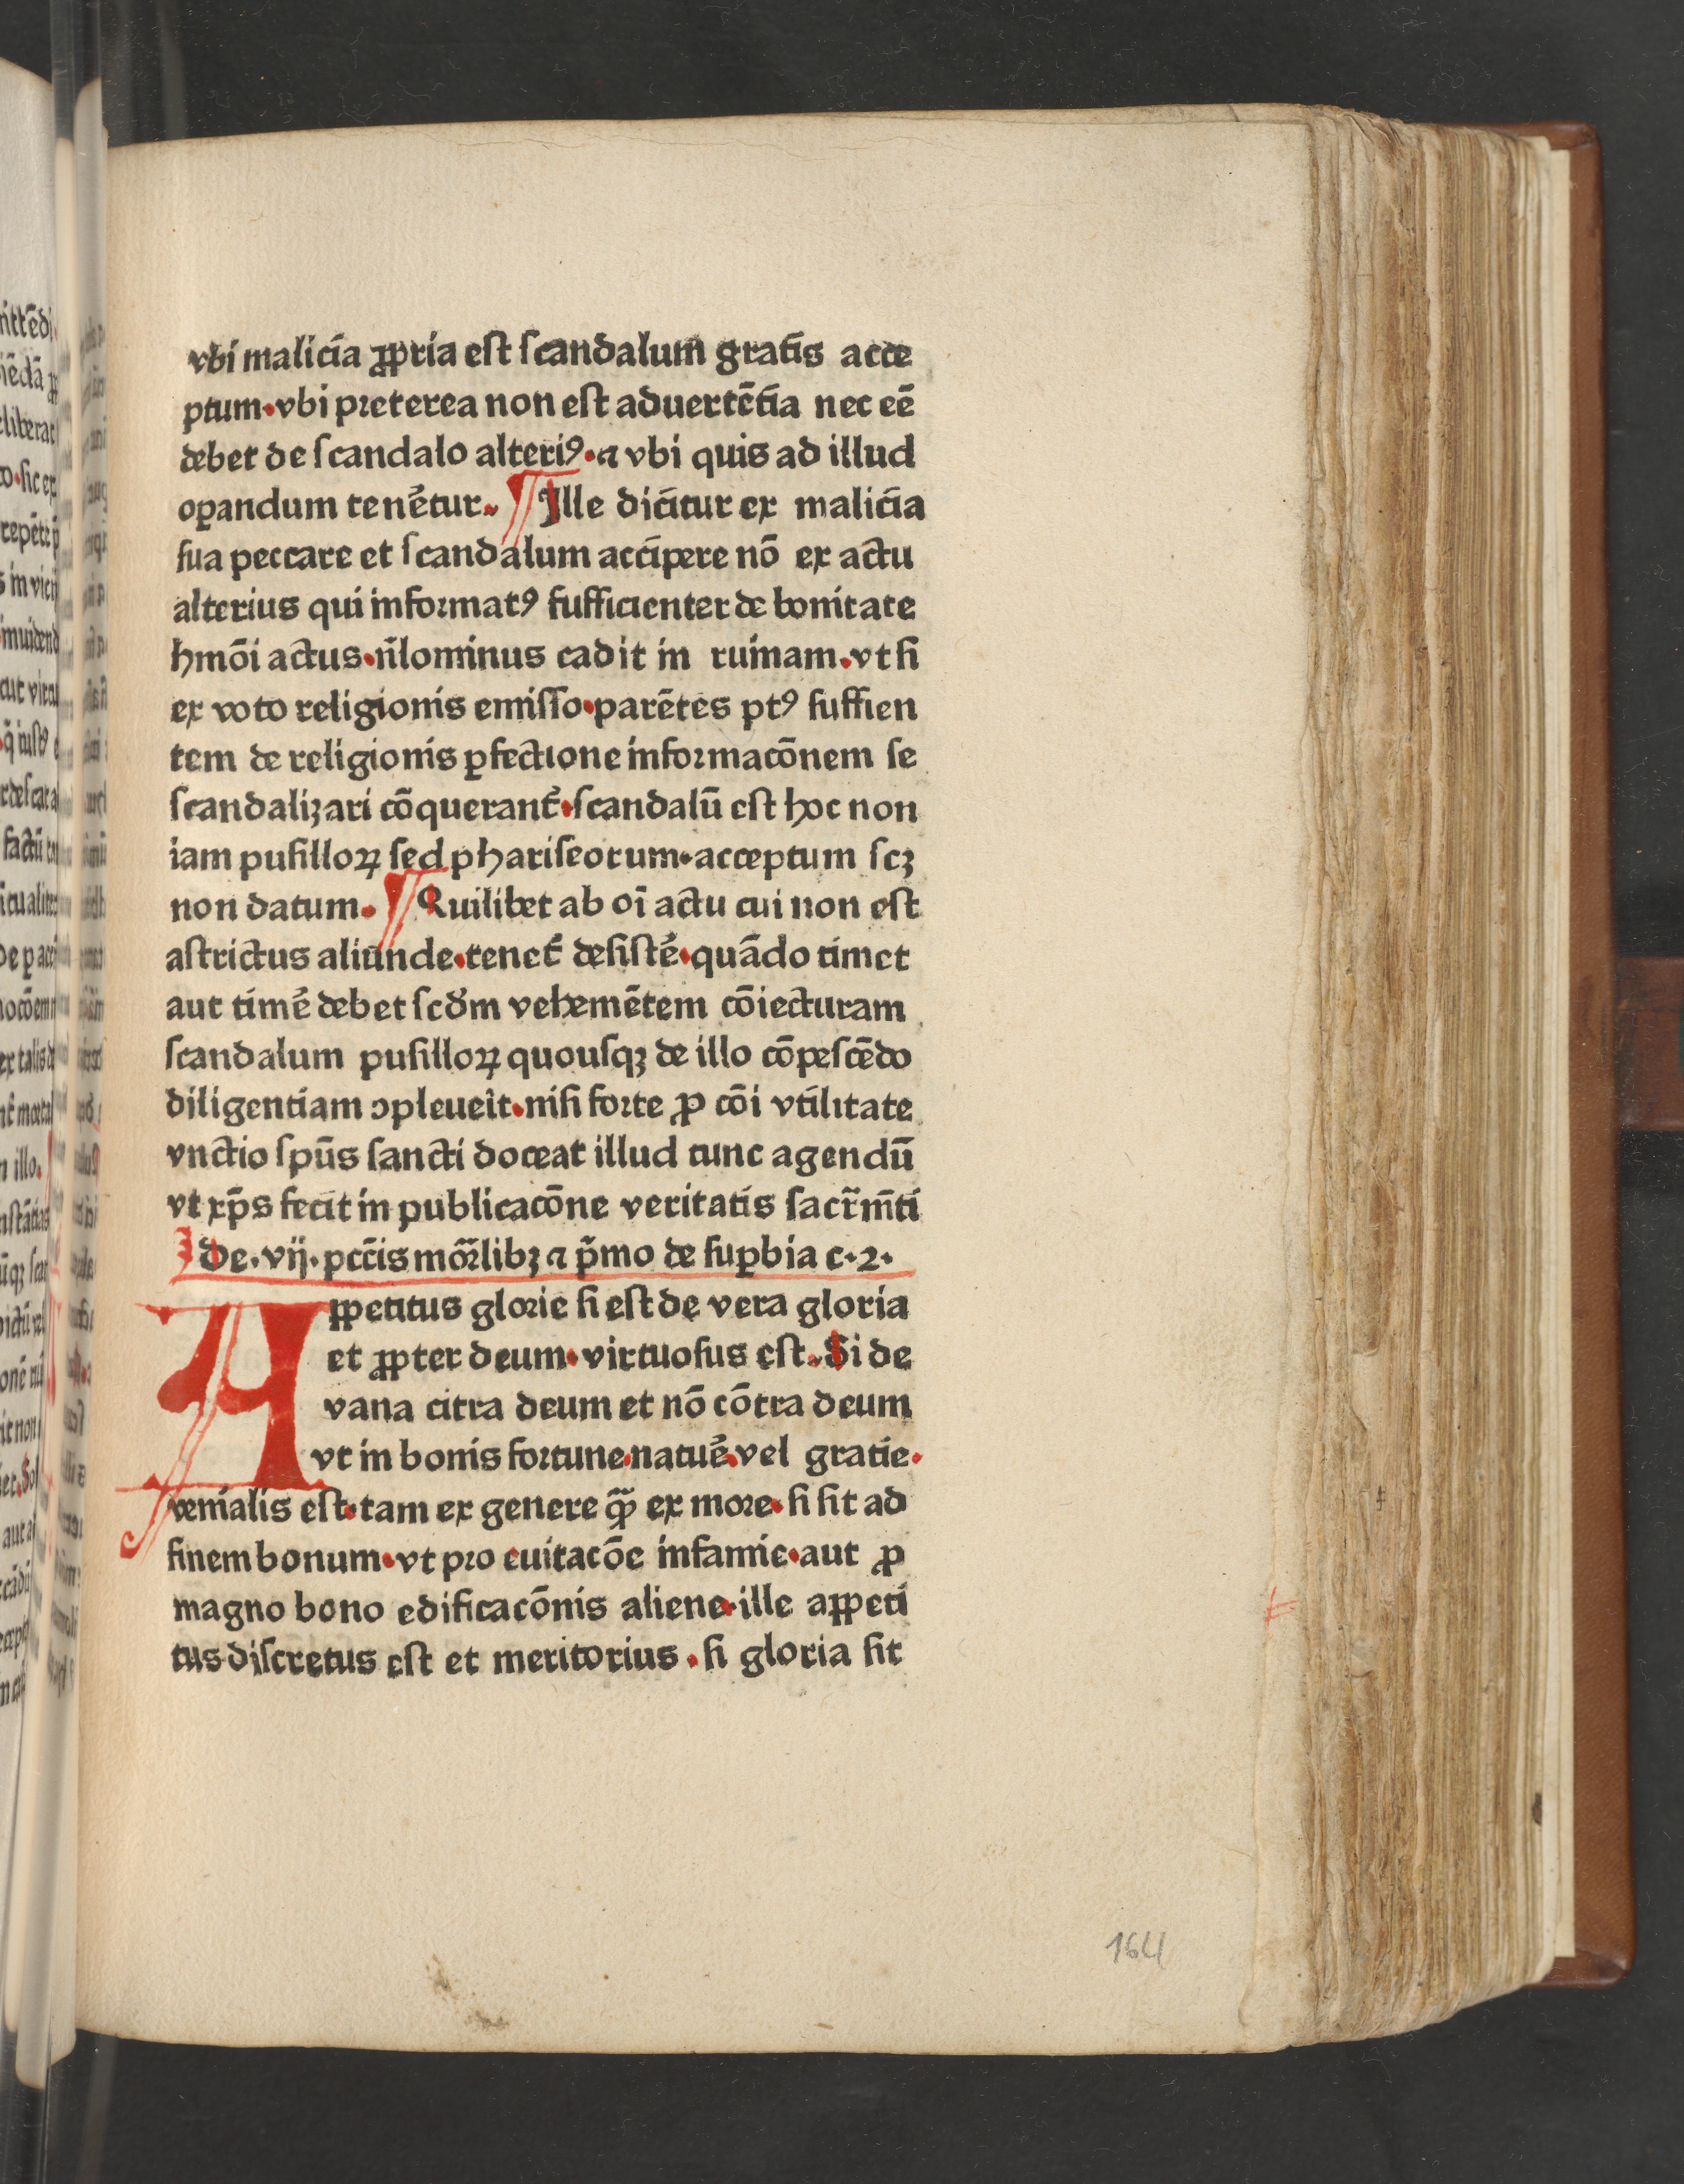 vbi malicia ꝓpria eſt ſcandalum gratis acce
ptum·vbi preterea non eſt aduertētia nec eē
debet de ſcandalo alteriꝰ·⁊ vbi quis ad illud
oꝑandum tenētur. ¶ Ille dicitur ex malicia
ſua peccare et ſcandalum accipere nō ex actu
alterius qui informatꝰ ſufficienter de bonitate
hmōi actus·n̄lominus cadit in ruinam.vt ſi
ex voto religionis emiſſo·parētes ptꝰ ſuffien
tem de religionis ꝑfectione informacōnem ſe
ſcandalizari cōquerant᷑·ſcandalū eſt hoc non
iam puſilloꝝ ſed phariſeorum·acceptum ſcꝫ
non datum. ¶ Quilibet ab oī actu cui non eſt
aſtrictus aliunde·tenet᷑ deſiſtē·quādo timet
aut timē debet ſcdm̄ vehemētem cōiecturam
ſcandalum puſilloꝝ quouſqꝫ de illo cōpeſcēdo
diligentiam ↄpleueit·niſi forte ꝓ cōi vtilitate
vnctio ſpūs ſancti doceat illud tunc agendū
vt xp̄s fecit in publicacōne veritatis ſacr̄m̄ti
De·vij·pccīs mor̄libꝫ ⁊ p̄mo de ſuꝑbia c·2·
Appetitus glorie ſi eſt de vera gloria
et ꝓpter deum·virtuoſus eſt.Si de
vana citra deum et nō cōtra deum
vt in bonis fortune·natuē·vel gratie·
venialis eſt·tam ex genere qꝫ̄ ex more·ſi ſit ad
finem bonum·vt pro euitacōe infamie·aut ꝓ
magno bono edificacōnis aliene·ille appeti
tus diſcretus eſt et meritorius·ſi gloria ſit
164